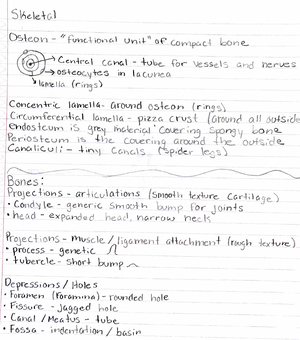 Skeletal
Osteon - "functional unit" of compact bone
Central canal - tube for vessels and nerves
osteocytes in lacunea
lamella (rings)
Concentric lamella - around osteon (rings)
Circumferential lamella - pizza crust (around all outside
Endosteum is grey material covering spongy bone
Periosteum is the covering around the outside
Canaliculi - tiny canals (spider legs)
Bones:
Projections - articulations (smooth texture cartilage)
• Condyle - generic smooth bump for joints
• head - expanded head, narrow neck
Projections - muscle/ligament attachment (rough texture)
• process - genetic
• tubercle - short bump
Depressions/Holes
• Foramen (foramina) - rounded hole
• Fissure - jagged hole
• Canal/Meatus - tube
• Fossa - indentation/basin